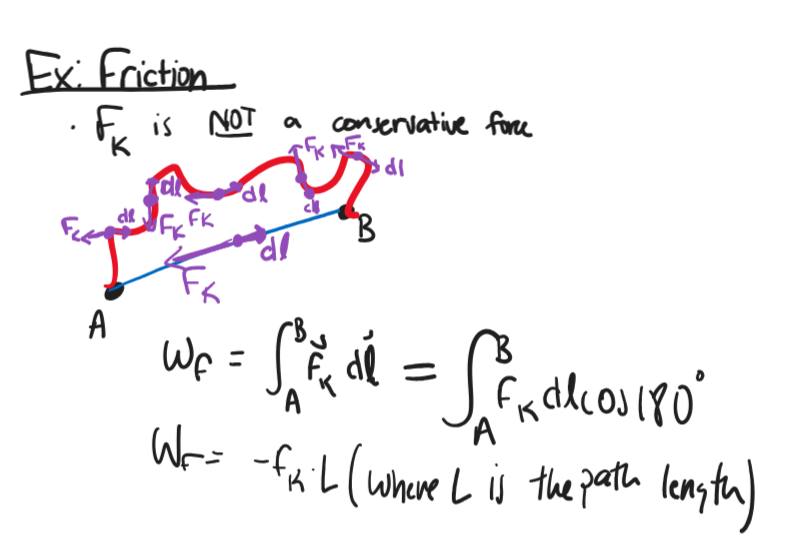 Ex: Friction
· F_K is NOT a conservative force
F_K F_K
dl dl dl
F_K dl F_K F_K dl
B
dl
F_K
A
W_F = ∫_A^B F⃗_K dl⃗ = ∫_A^B F_K dl cos 180°
W_F = -f_K · L (where L is the path length)